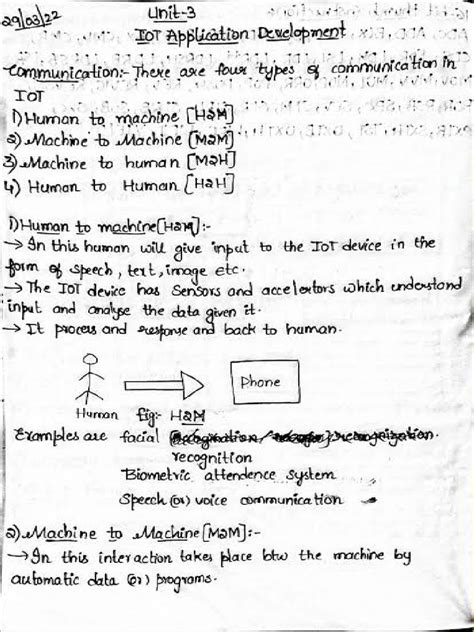 29/03/22
Unit-3
IoT Application Development
Communication:- There are four types of communication in
IOT
1) Human to machine [H2M]
2) Machine to Machine [M2M]
3) Machine to human [M2H]
4) Human to Human [H2H]
1) Human to machine [H2M]:-
→ In this human will give input to the IoT device in the
form of speech, text, image etc.
→ The IoT device has Sensors and accelertors which understand
input and analyse the data given it.
→ It process and response and back to human.
Phone
Human fig:- H2M
Examples are facial
recognition
Biometric attendence system
Speech (or) voice communication
2) Machine to Machine [M2M]:-
→ In this interaction takes place btw the machine by
automatic data (or) programs.